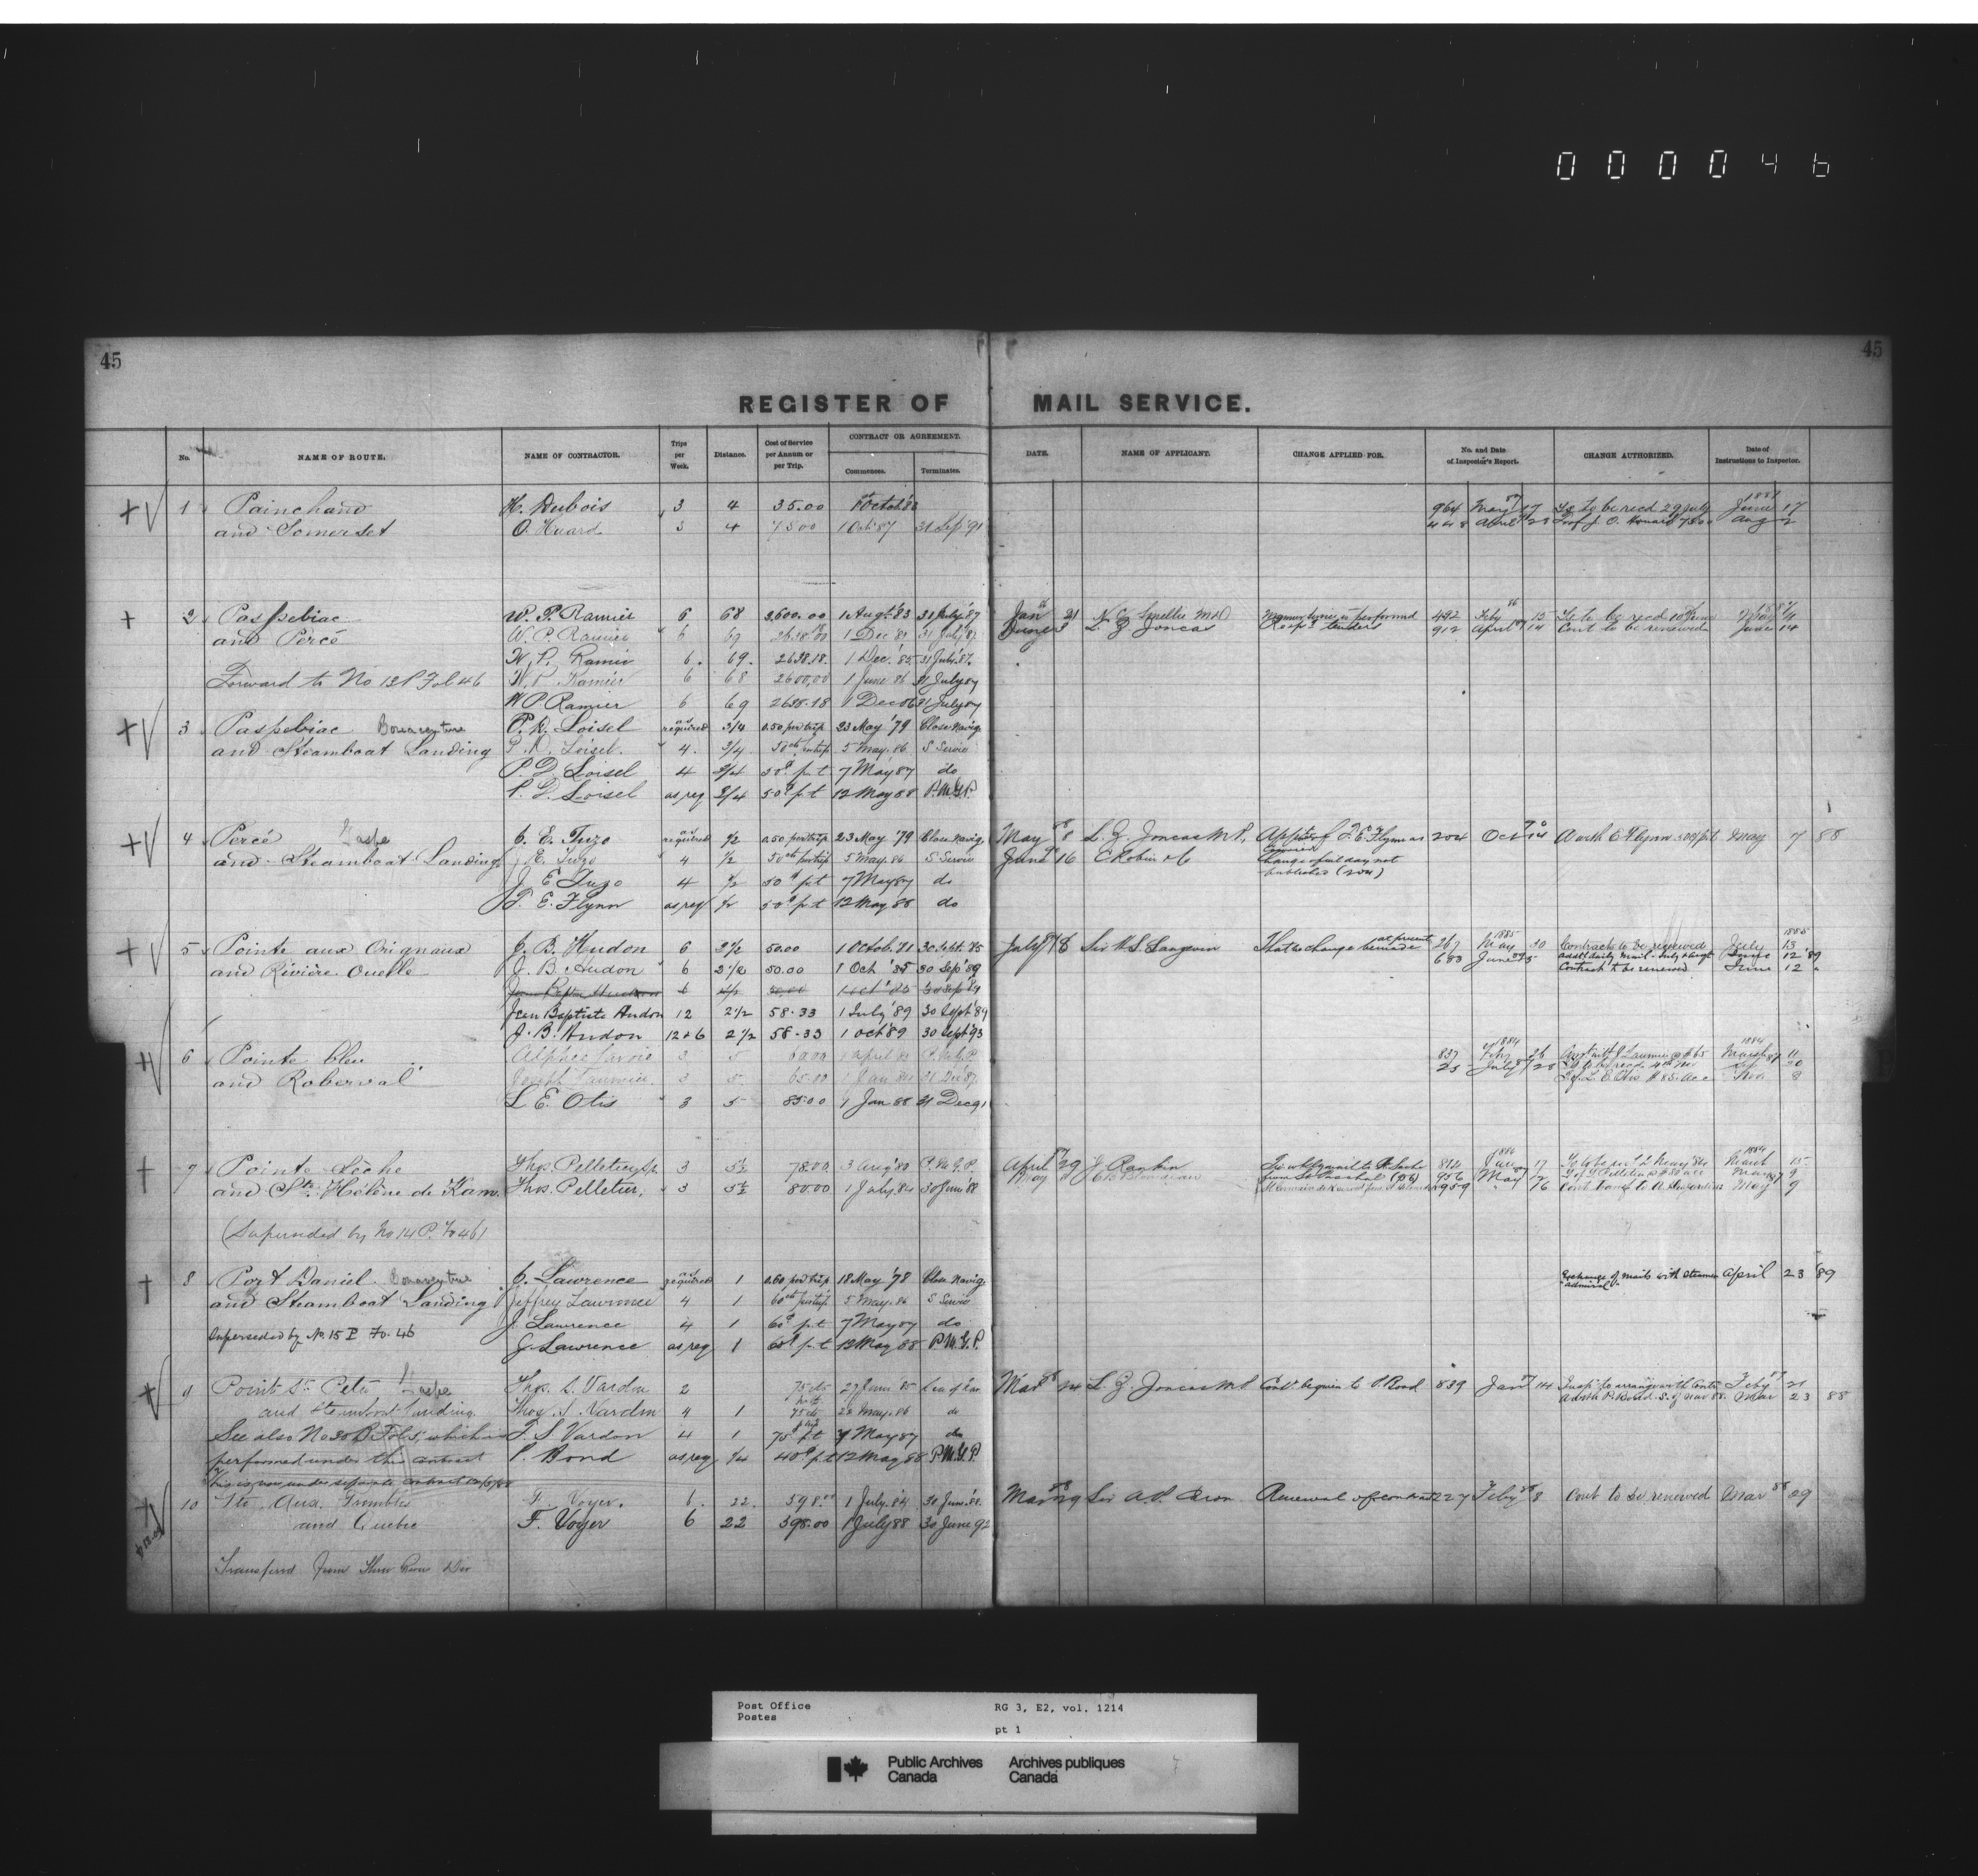 000046
45
45
REGISTER OF MAIL SERVICE.
No.
NAME OF ROUTE.
NAME OF CONTRACTOR.
Trips per Week.
Distance.
Cost of Service per Annum or per Trip.
CONTRACT OR AGREEMENT.
Commences.
Terminates.
DATE.
NAME OF APPLICANT.
CHANGE APPLIED FOR.
No. and Date of Inspector's Report.
CHANGE AUTHORIZED.
Date of Instructions to Inspector.
1 Painchaud H. Dubois 3 4 35.00 1 Octob '83 964 May 87 17 to be recd 29 July 1887 June 17
and Somerset O. Huard 3 4 75.00 1 Oct '87 31 Sep '91 448 April 75.00 Aug 2
2 Paspebiac W. P. Ramier 6 68 2,600.00 1 Augt. '83 31 July '87 Jan 21 Smellie service is performed 492 Feby 86 15 to be recd
and Percé W. P. Ramier 6 69 1 Dec 31 July '87 June L. Z. Joncas tenders 912 April 14 Cont to be renewed June 14
W. P. Ramier 6. 69. 2638.18. 1 Dec. '85 31 July '87.
Forward to No 13 P Fol 46 W. P. Ramier 6 68 2600,00 1 June 86 31 July 87
W P Ramier 6 69 2638.18 1 Dec 86 31 July 87
3 Paspebiac Bonaventure P. D. Loisel as required 3/4 0.50 per trip 23 May '79 Close Navig.
and Steamboat Landing P. D. Loisel. " 4. 3/4 50 cts per trip 5 May. 86 S Service
P. D. Loisel 4 3/4 50c p t 7 May 87 do
P. D. Loisel as req 3/4 50c p t 12 May 88 P.M.G.P.
4 Percé Gaspe J. E. Tuzo as required 1/2 0.50 per trip 23 May '79 Close Navig. May 8 L. Z. Joncas M.P. Appt of T. E. Flynn as 204 Oct 14 Flynn 50c p t May 7 88
and Steamboat Landing J. E. Tuzo 4 1/2 50 cts per trip 5 May. 86 S. Service June 16 C Robin & Co Change of mail day not
J. E Tuzo 4 1/2 50c p t 7 May 87 do published (204)
T. E. Flynn as req 1/2 50c p t 12 May 88 do
5 Pointe aux Orignaux J. B. Hudon 6 2 1/2 50.00 1 Octob. '81 30 Sept. '85 July 18 Sir H. L. Langevin That no change be made at present 267 1885 May 30 Contracts to be renewed 1885 July 13
and Rivière Ouelle J. B. Hudon " 6 2 1/2 50.00 1 Oct '85 30 Sep '89 680 June 5 addtl daily mail - July & Augt June 12 '89
Contract to be renewed June 12 "
Jean Baptiste Hudon 6 2 1/2 50.00 1 Oct '85 30 Sep '89
Jean Baptiste Hudon 12 2 1/2 58.33 1 July '89 30 Sept '89
J. B. Hudon 12 & 6 2 1/2 58.33 1 Oct '89 30 Sept '93
6 Pointe bleu 3 5 60.00 1 April 83 P.M.G.P. 837 1884 Feby 26 $65 1884 March 11
and Roberval Joseph 3 5 65.00 1 Jan 84 31 Dec '87 25 July 28 20
L E. Otis " 3 5 85.00 1 Jan 88 31 Dec 91 L. E. Otis $85 acc Nov 8
7 Pointe Sèche Thos. Pelletier 3 5 1/2 78.00 3 Aug '80 P.M.G.P. April 29 J Rankin 812 1884 Jan 17 1884 March 15
and Ste. Hélène de Kam. Thos. Pelletier, " 3 5 1/2 80.00 1 July. 84 30 June 88 May 956 May 12 May 9
959 " 16 May 9
(Superseded by No 14 P. Fo 46)
8 Port Daniel Bonaventure J. Lawrence as required 1 0.60 per trip 18 May '78 Close Navig. Exchange of mails with steamer April 23 '89
and Steamboat Landing Jeffrey Lawrence 4 1 60 cts per trip 5 May. 86 S Service "Admiral"
J. Lawrence 4 1 60c p t 7 May 87 do
Superseded by No. 15 P Fo. 46 J. Lawrence as req 1 60c p t 12 May 88 P M.G.P.
9 Pointe St. Peter Gaspe Thos. S. Vardon 2 75 cts 27 June 85 Mar 24 L. Z. Joncas M.P. Cont be given to P Bond 839 Jan 14 Feby
and Steamboat Landing. Thos. S. Vardon 4 1 75 cts 22 May. 86 do Mar 23 88
See also No 30 P Fol 5, which is T. S Vardon 4 1 75c p t 7 May 87 do
performed under this contract P. Bond as req 1/4 40c p t 12 May 88 P.M.G.P.
This is now under separate contract
10 Pte. Aux. Trembles F. Voyer. 6. 22. 598.00 1 July. '84 30 June. '88. Mar 29 Sir A. P. Caron Renewal of contract 227 Feby 8 Cont to be renewed Mar 88 29
and Quebec F. Voyer 6 22 398.00 1 July 88 30 June 92
Transferred from Three Rivers Div
Post Office
Postes
RG 3, E2, vol. 1214
pt 1
Public Archives
Canada
Archives publiques
Canada